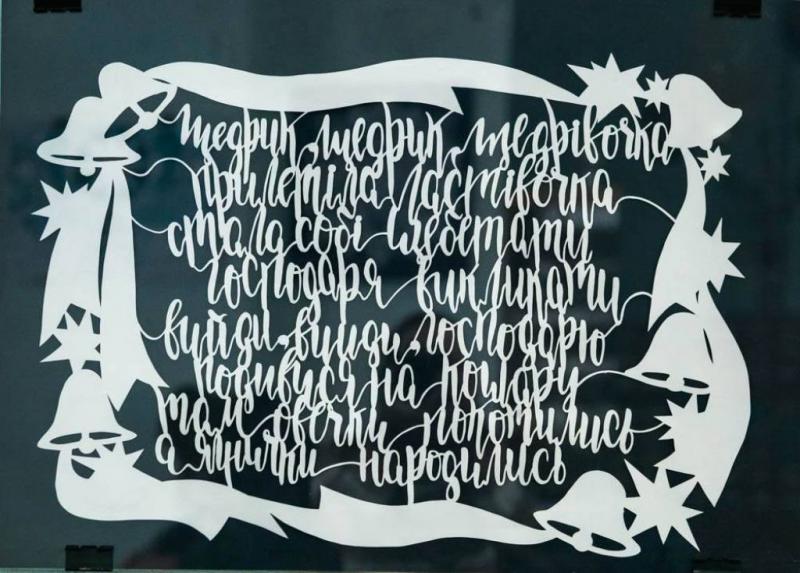 щедрик щедрик щедрівочка
прилетіла ластівочка
стала собі щебетати
господаря викликати
вийди вийди господарю
подивися на кошару
там овечки покотились
а ягнички народились